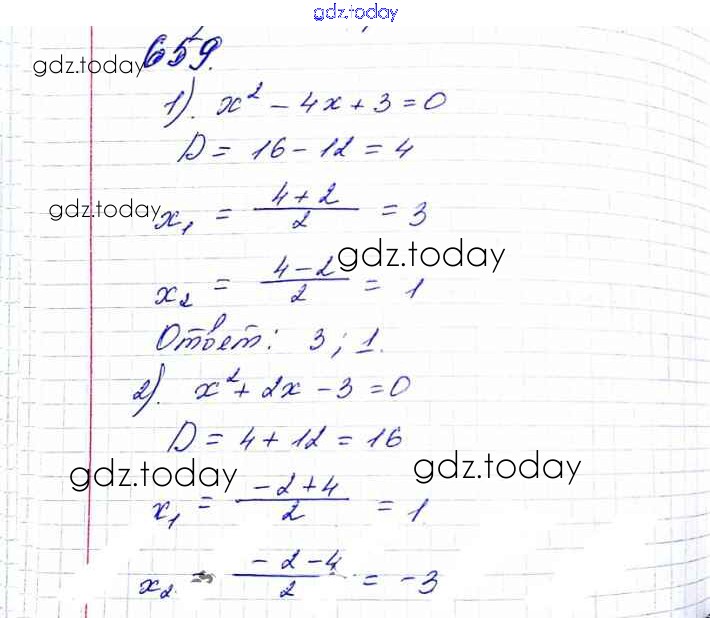 gdz.today
659.
gdz.today
1). x² - 4x + 3 = 0
D = 16 - 12 = 4
gdz.today
x₁ = (4 + 2)/2 = 3
gdz.today
x₂ = (4 - 2)/2 = 1
Ответ: 3; 1.
2). x² + 2x - 3 = 0
D = 4 + 12 = 16
gdz.today gdz.today
x₁ = (-2 + 4)/2 = 1
x₂ = (-2 - 4)/2 = -3